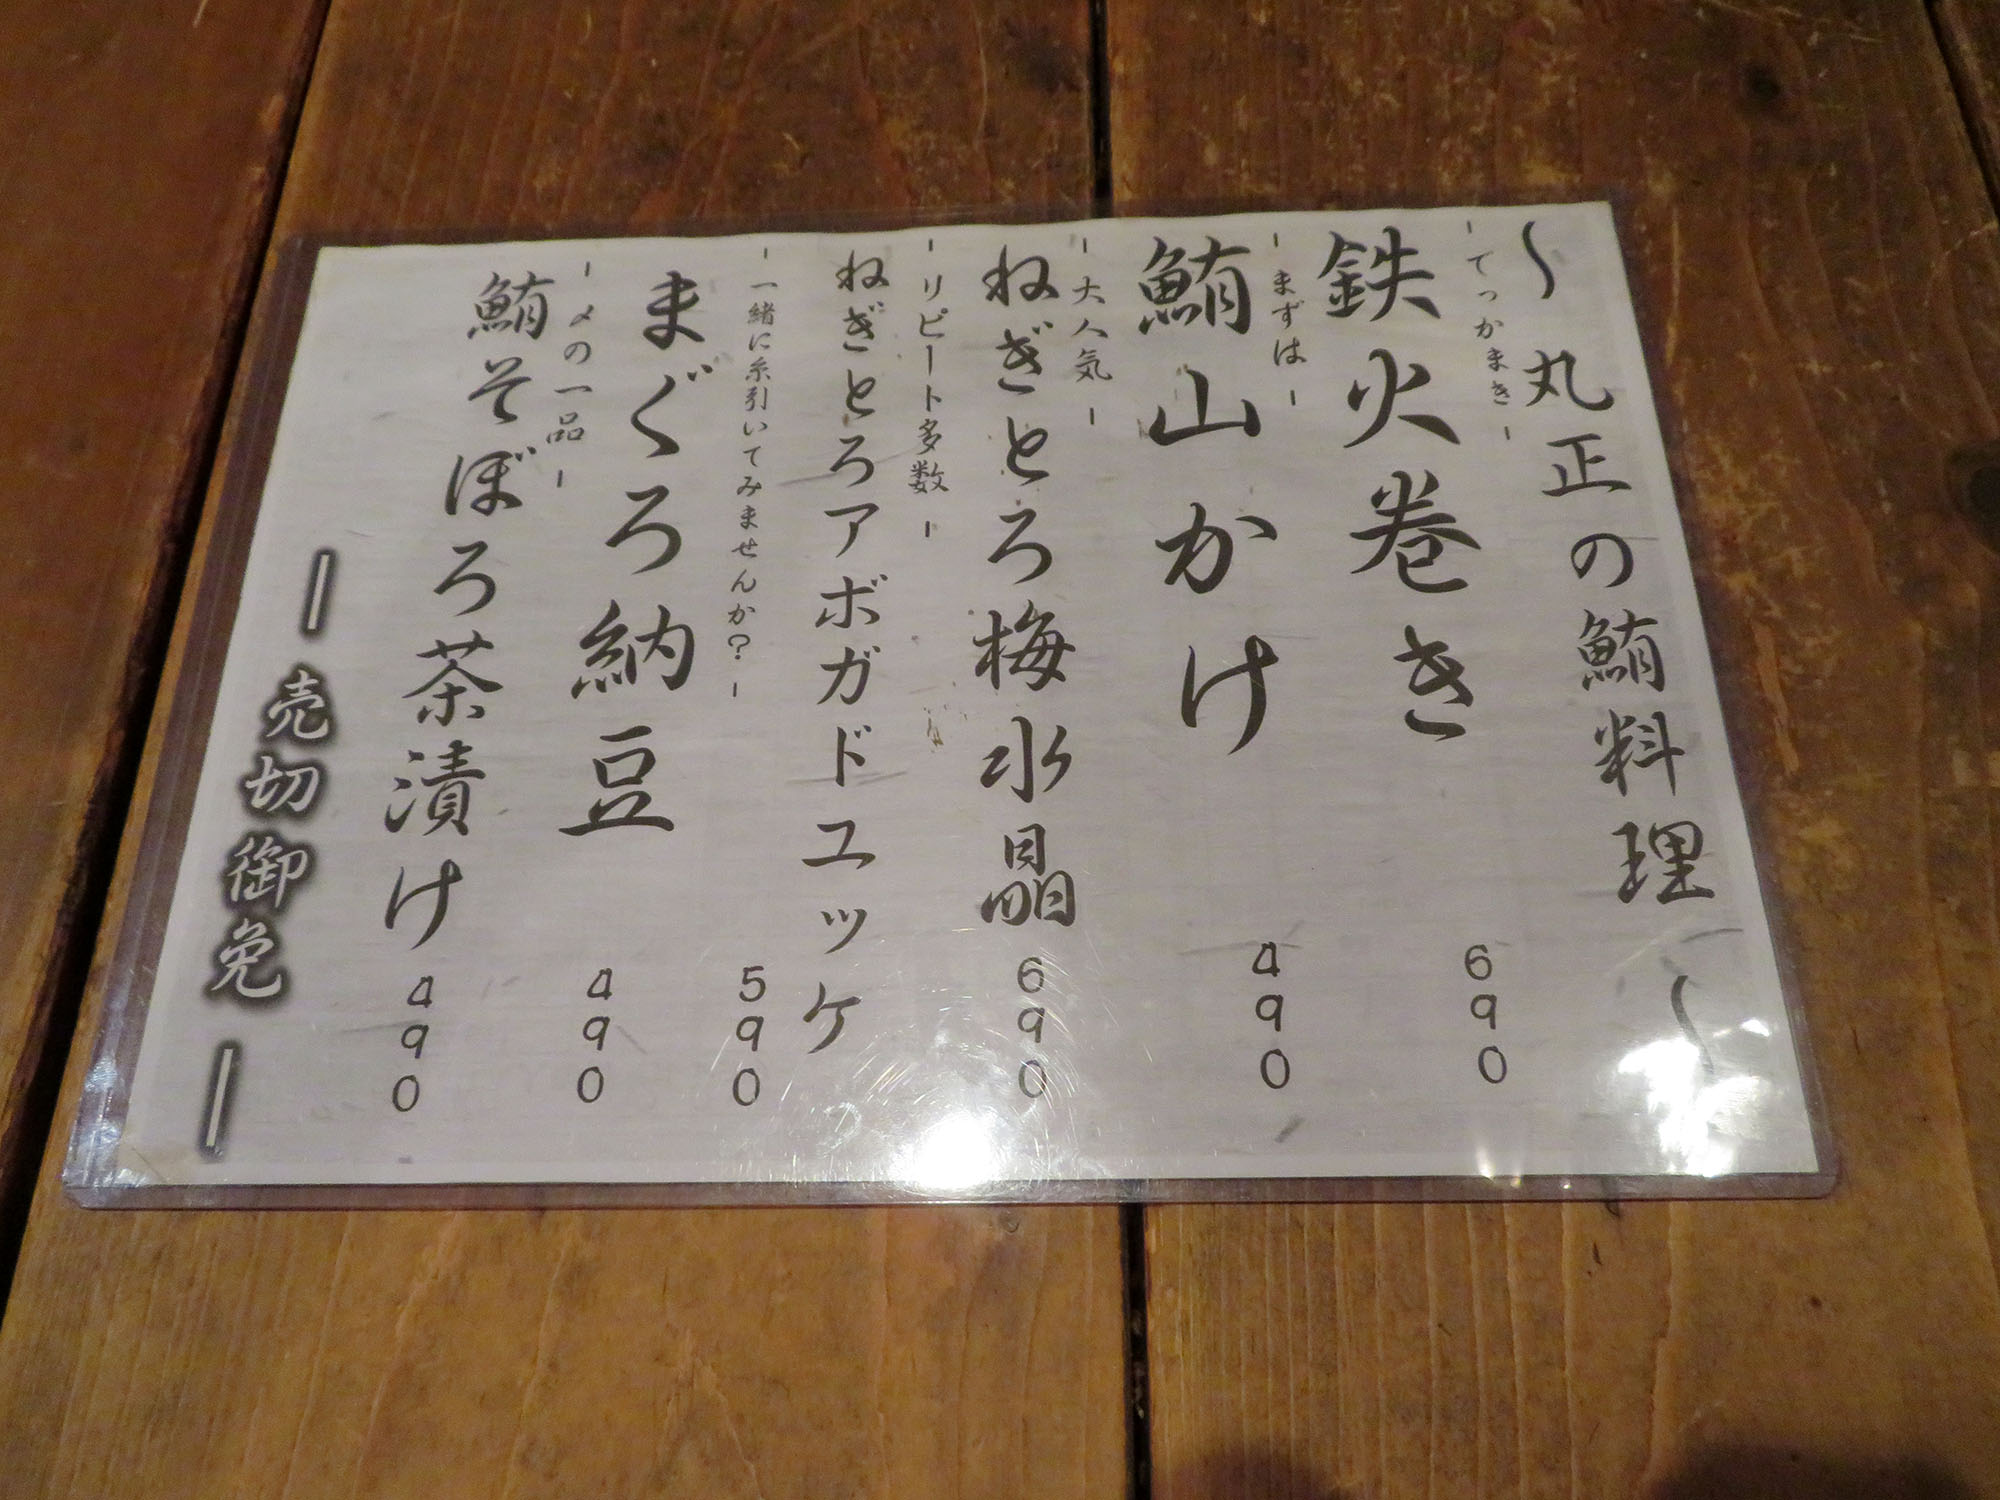 ～丸正の鮪料理～
-てっかまき-
鉄火巻き 690
-まずは-
鮪山かけ 490
-大人気-
ねぎとろ梅水晶 690
-リピート多数-
ねぎとろアボガドユッケ 590
-一緒に糸引いてみませんか?-
まぐろ納豆 490
-〆の一品-
鮪そぼろ茶漬け 490
―売切御免―